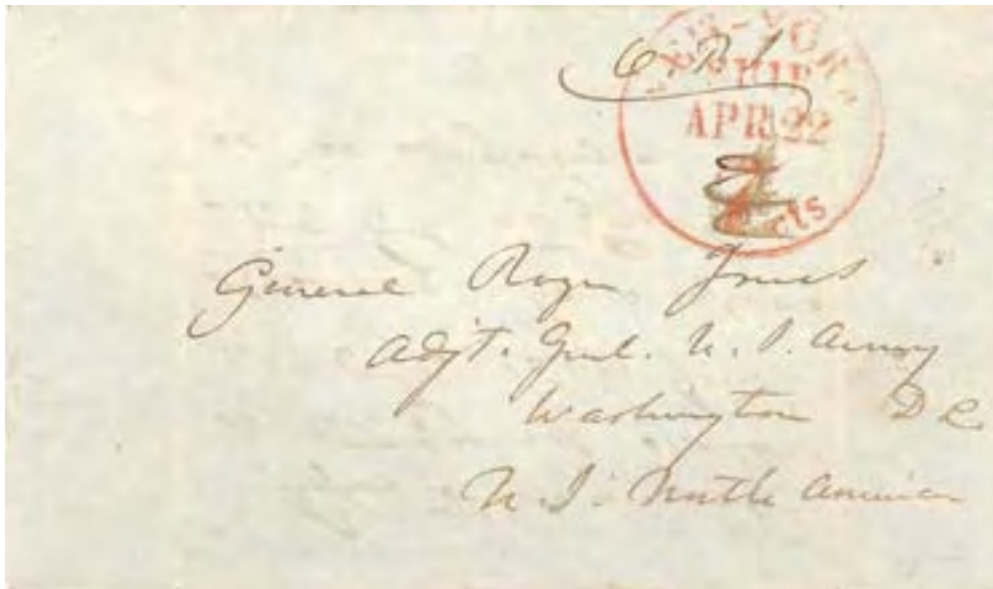 NEW-YORK
SHIP
APR 22
cts
General Roger Jones
Adjt. Genl. U. S. Army
Washington D C
U. S. North America